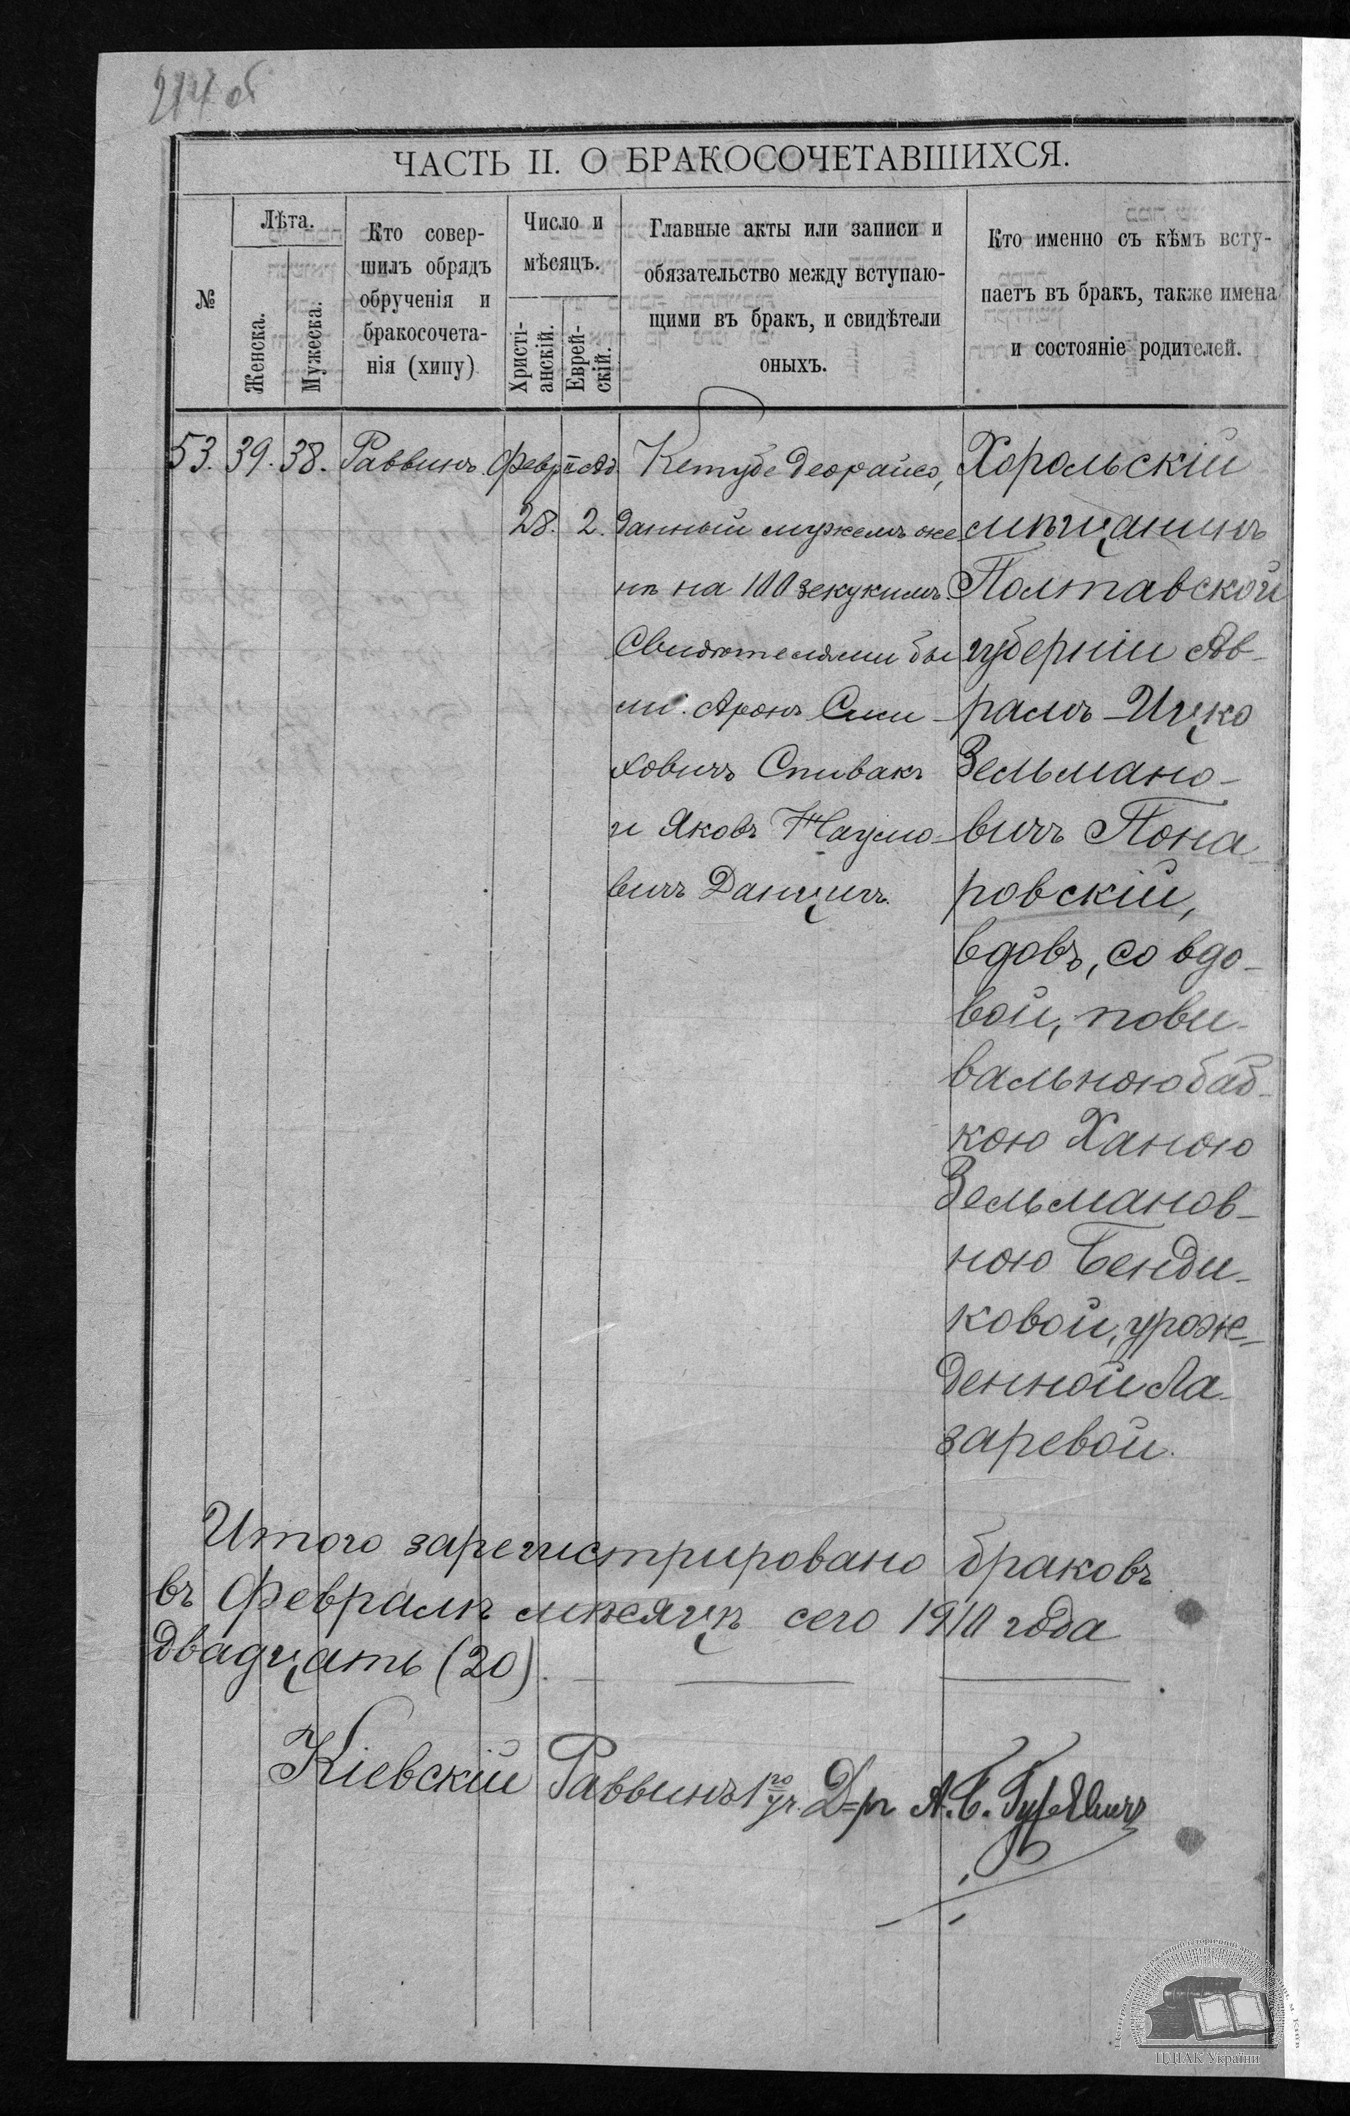 274 об
ЧАСТЬ II. О БРАКОСОЧЕТАВШИХСЯ.
№
Лѣта.
Женска.
Мужеска.
Кто совер-
шилъ обрядъ
обрученія и
бракосочета-
нія (хипу)
Число и
мѣсяцъ.
Христі-
анскій.
Еврей-
скій.
Главные акты или записи и
обязательство между вступаю-
щими въ бракъ, и свидѣтели
оныхъ.
Кто именно съ кѣмъ всту-
паетъ въ бракъ, также имена
и состояніе родителей.
53. 39. 38. Раввинъ
Февр.
28.
II Ад.
2.
Кетубе деорайсо,
данный мужемъ же
нѣ на 100 зекукимъ.
Свидѣтелями бы
ли: Аронъ Сим
ховичъ Спивакъ
и Яковъ Наумо-
вичъ Данцигъ.
Хорольскій
мѣщанинъ
Полтавской
губерніи Ав-
рамъ-Ицко
Зельмано-
вичъ Пона-
ровскій,
вдовъ, со вдо-
вой, пови-
вальною баб-
кою Ханою
Зельманов-
ною Бенди-
ковой, урож-
денной Ла-
заревой.
Итого зарегистрировано браковъ
въ Февралѣ мѣсяцѣ сего 1910 года
двадцать (20).
Кіевскій Раввинъ 1го уч. Д-ръ А. Б. Гуревичъ
ЦДІАК України